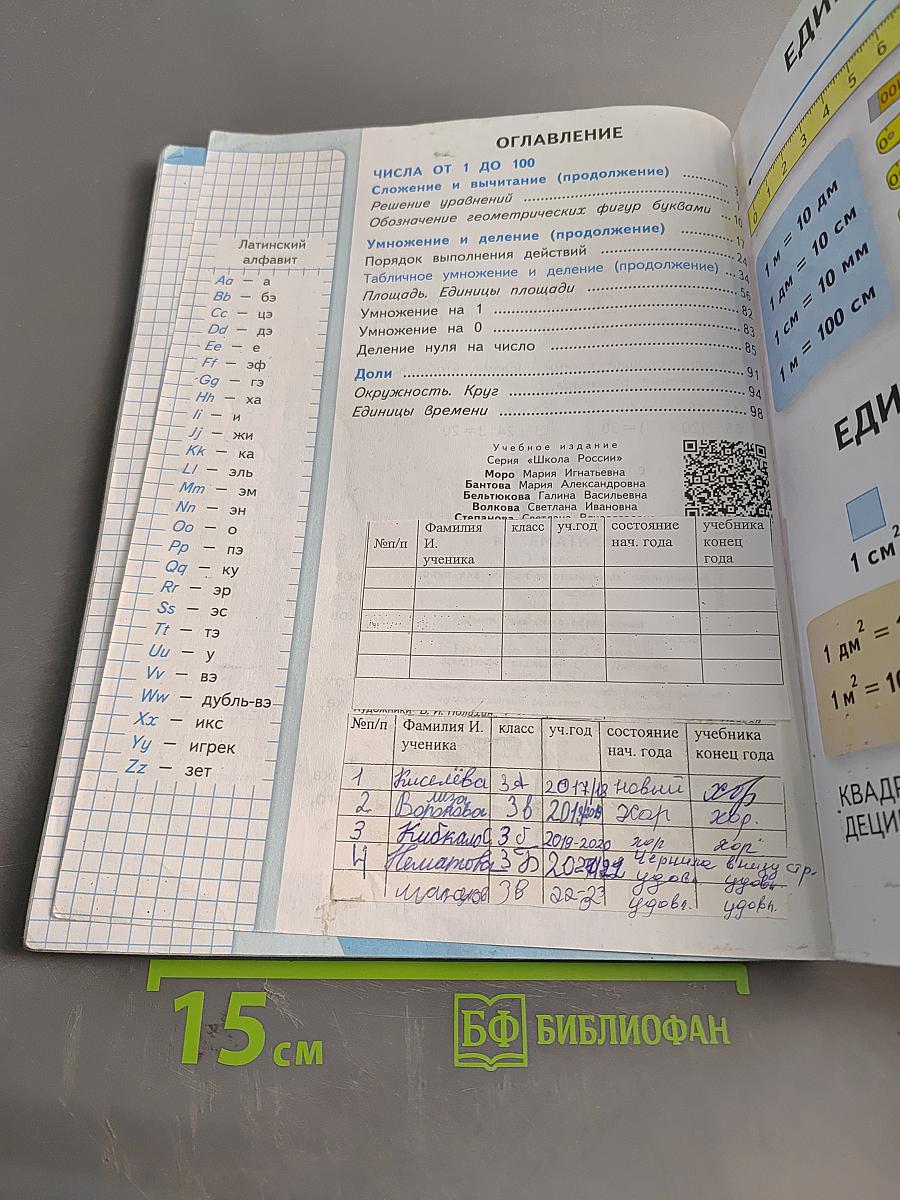 Латинский
алфавит
Aa — а
Bb — бэ
Cc — цэ
Dd — дэ
Ee — е
Ff — эф
Gg — гэ
Hh — ха
Ii — и
Jj — жи
Kk — ка
Ll — эль
Mm — эм
Nn — эн
Oo — о
Pp — пэ
Qq — ку
Rr — эр
Ss — эс
Tt — тэ
Uu — у
Vv — вэ
Ww — дубль-вэ
Xx — икс
Yy — игрек
Zz — зет
ОГЛАВЛЕНИЕ
ЧИСЛА ОТ 1 ДО 100
Сложение и вычитание (продолжение) ........ 3
Решение уравнений ........
Обозначение геометрических фигур буквами ... 10
Умножение и деление (продолжение) ........ 17
Порядок выполнения действий ........ 24
Табличное умножение и деление (продолжение) .. 34
Площадь. Единицы площади ........ 56
Умножение на 1 ........ 82
Умножение на 0 ........ 83
Деление нуля на число ........ 85
Доли ........ 91
Окружность. Круг ........ 94
Единицы времени ........ 98
Учебное издание
Серия «Школа России»
Моро Мария Игнатьевна
Бантова Мария Александровна
Бельтюкова Галина Васильевна
Волкова Светлана Ивановна
Степанова Светлана
№п/п Фамилия И. ученика класс уч.год состояние нач. года учебника конец года
№п/п Фамилия И. ученика класс уч.год состояние нач. года учебника конец года
1 Киселёва 3А 2017/18 новый хор
Лиза
2 Воронова 3в хор хор.
3 3б 2019-2020 хор хор
4 Нематов 3Б чернила внизу стр.
удовл. удовл.
3В 22-23 удовл. удовл.
0 1 2 3 4 5 6
1 м = 10 дм
1 дм = 10 см
1 см = 10 мм
1 м = 100 см
ЕДИ
1 см²
1 дм² =
1 м² = 10
КВАДР
ДЕЦИ
15 см
БФ БИБЛИОФАН